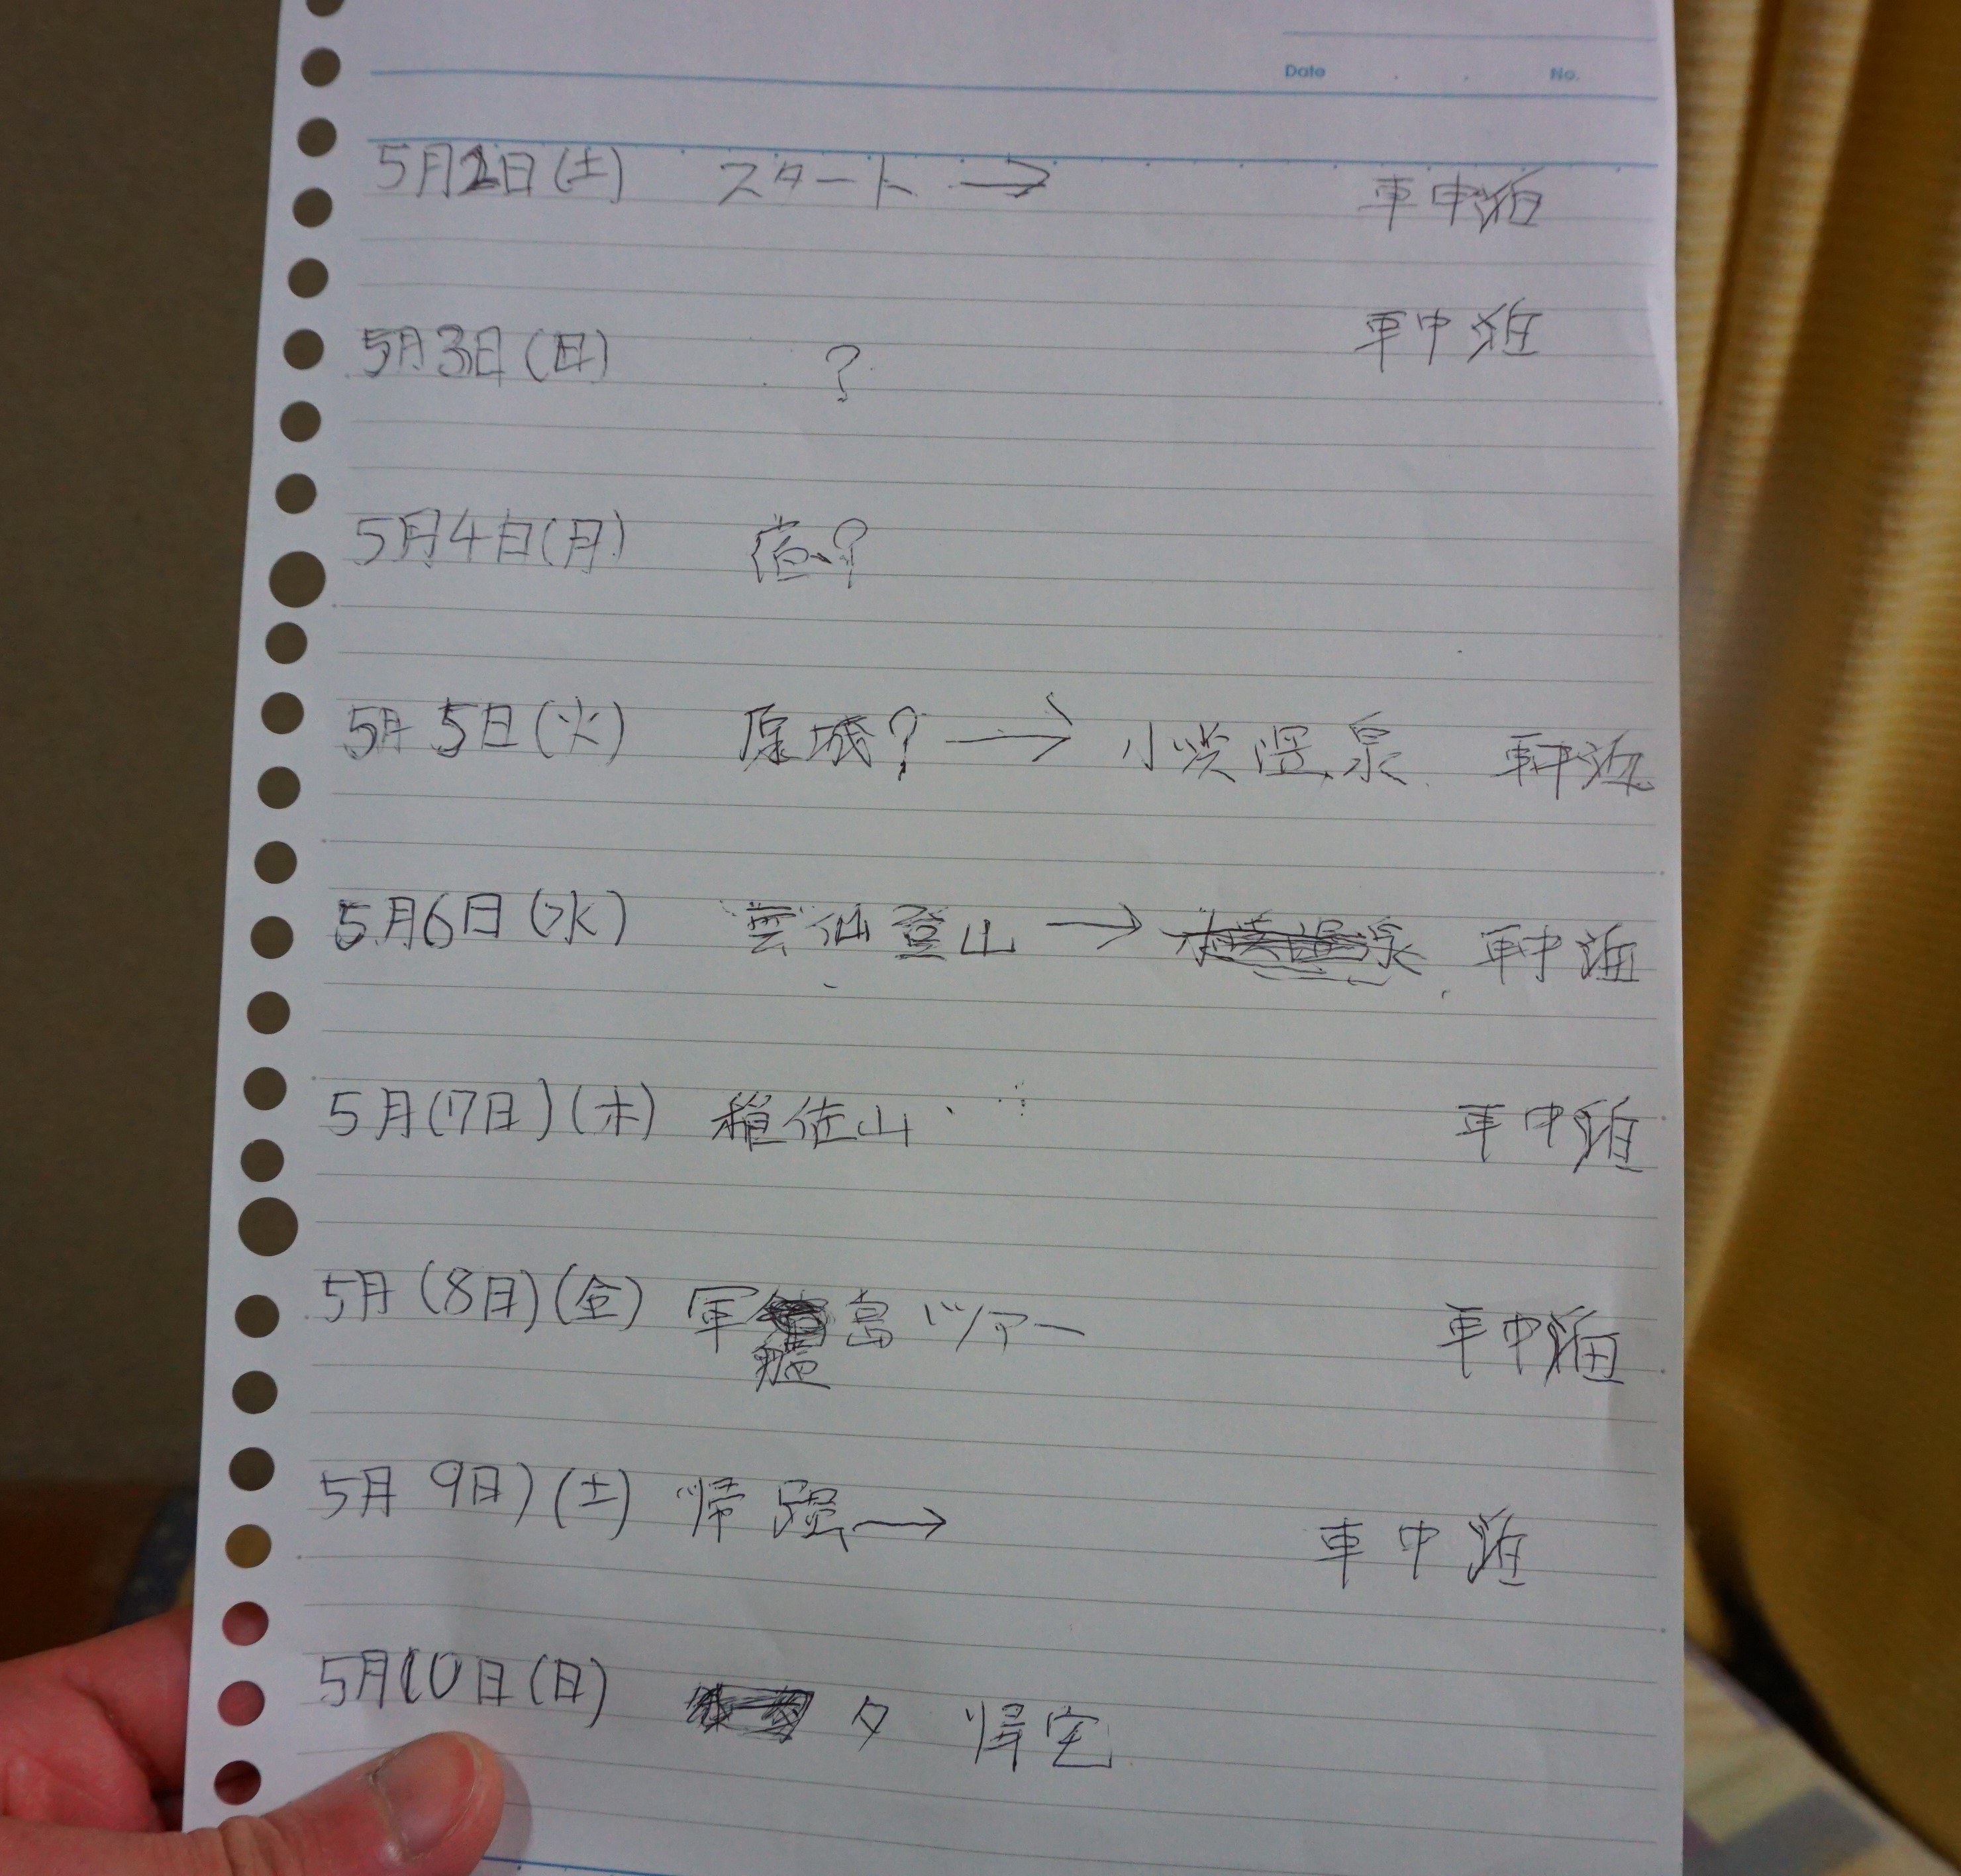 Date . . No.
5月2日(土) スタート → 車中泊
5月3日(日) ? 車中泊
5月4日(月) 宿?
5月5日(火) 原城? → 小浜温泉 車中泊
5月6日(水) 雲仙登山 → 車中泊
5月(7日)(木) 稲佐山 車中泊
5月(8日)(金) 軍艦島ツアー 車中泊
5月9日)(土) 帰還→ 車中泊
5月10日(日) 夕 帰宅